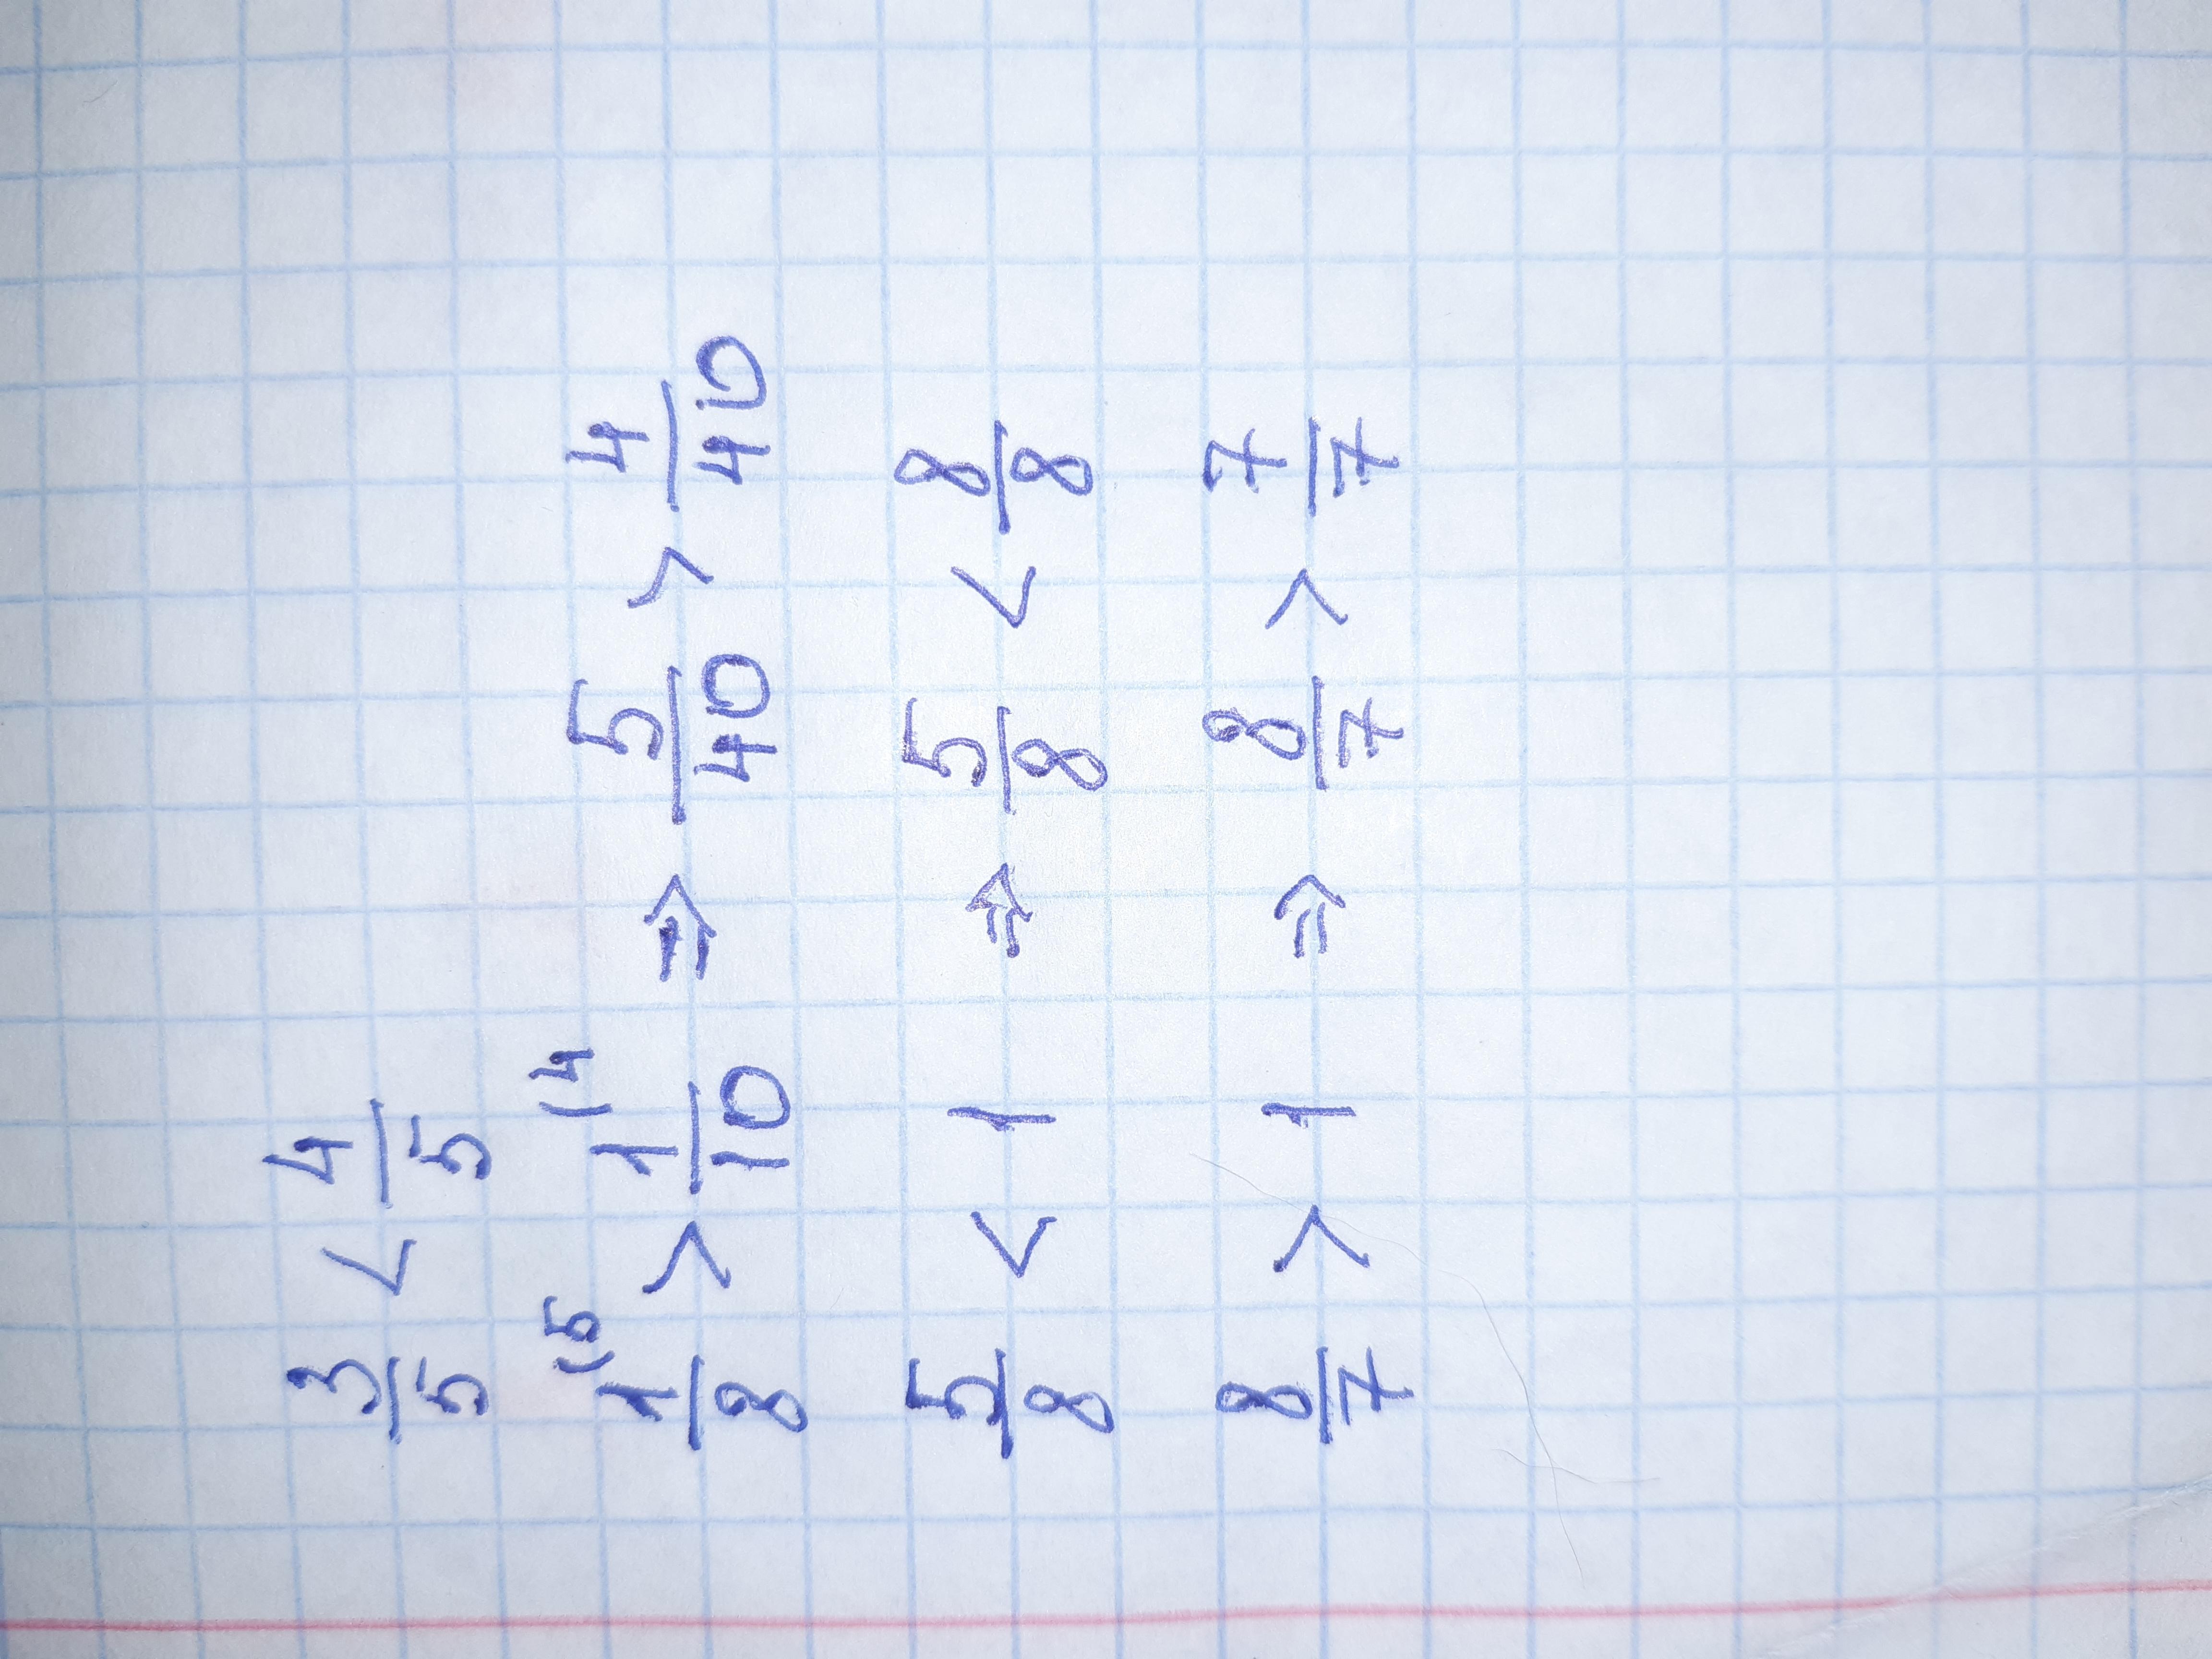 3/5 < 4/5
1/8 (5 > 1/10 (4 ⇒ 5/40 > 4/40
5/8 < 1 ⇒ 5/8 < 8/8
8/7 > 1 ⇒ 8/7 > 7/7